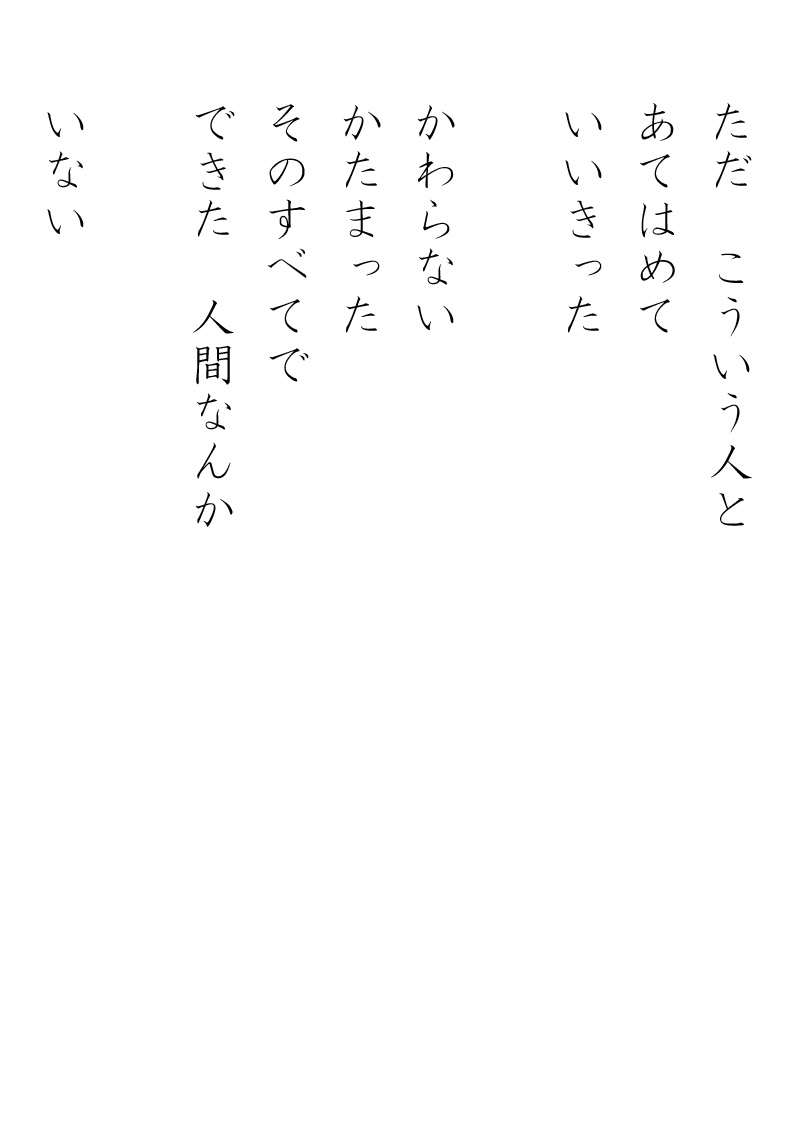 ただ　こういう人と
あてはめて
いいきった
かわらない
かたまった
そのすべてで
できた　人間なんか
いない